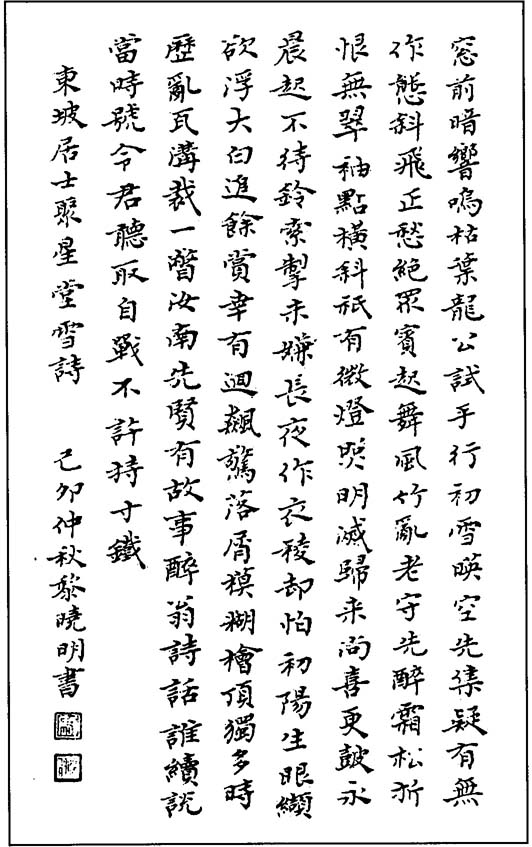 窓前暗響鳴枯葉龍公試手行初雪暎空先集疑有無
作態斜飛正愁絕眾賓起舞風竹亂老守先醉霜松折
恨無翠袖點橫斜祇有微燈照明滅歸来尚喜更鼓永
晨起不待鈴索掣未嫌長夜作衣稜却怕初陽生眼纈
欲浮大白追餘賞幸有迴飆驚落屑模糊檜頂獨多時
歷亂瓦溝裁一瞥汝南先賢有故事醉翁詩話誰續說
當時號令君聽取白戰不許持寸鐵
東坡居士聚星堂雪詩 己卯仲秋黎曉明書